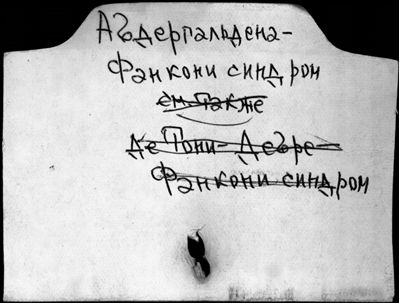 Абдергальдена-
Фанкони синдром
см. также
де Тони-Дебре-
Фанкони синдром